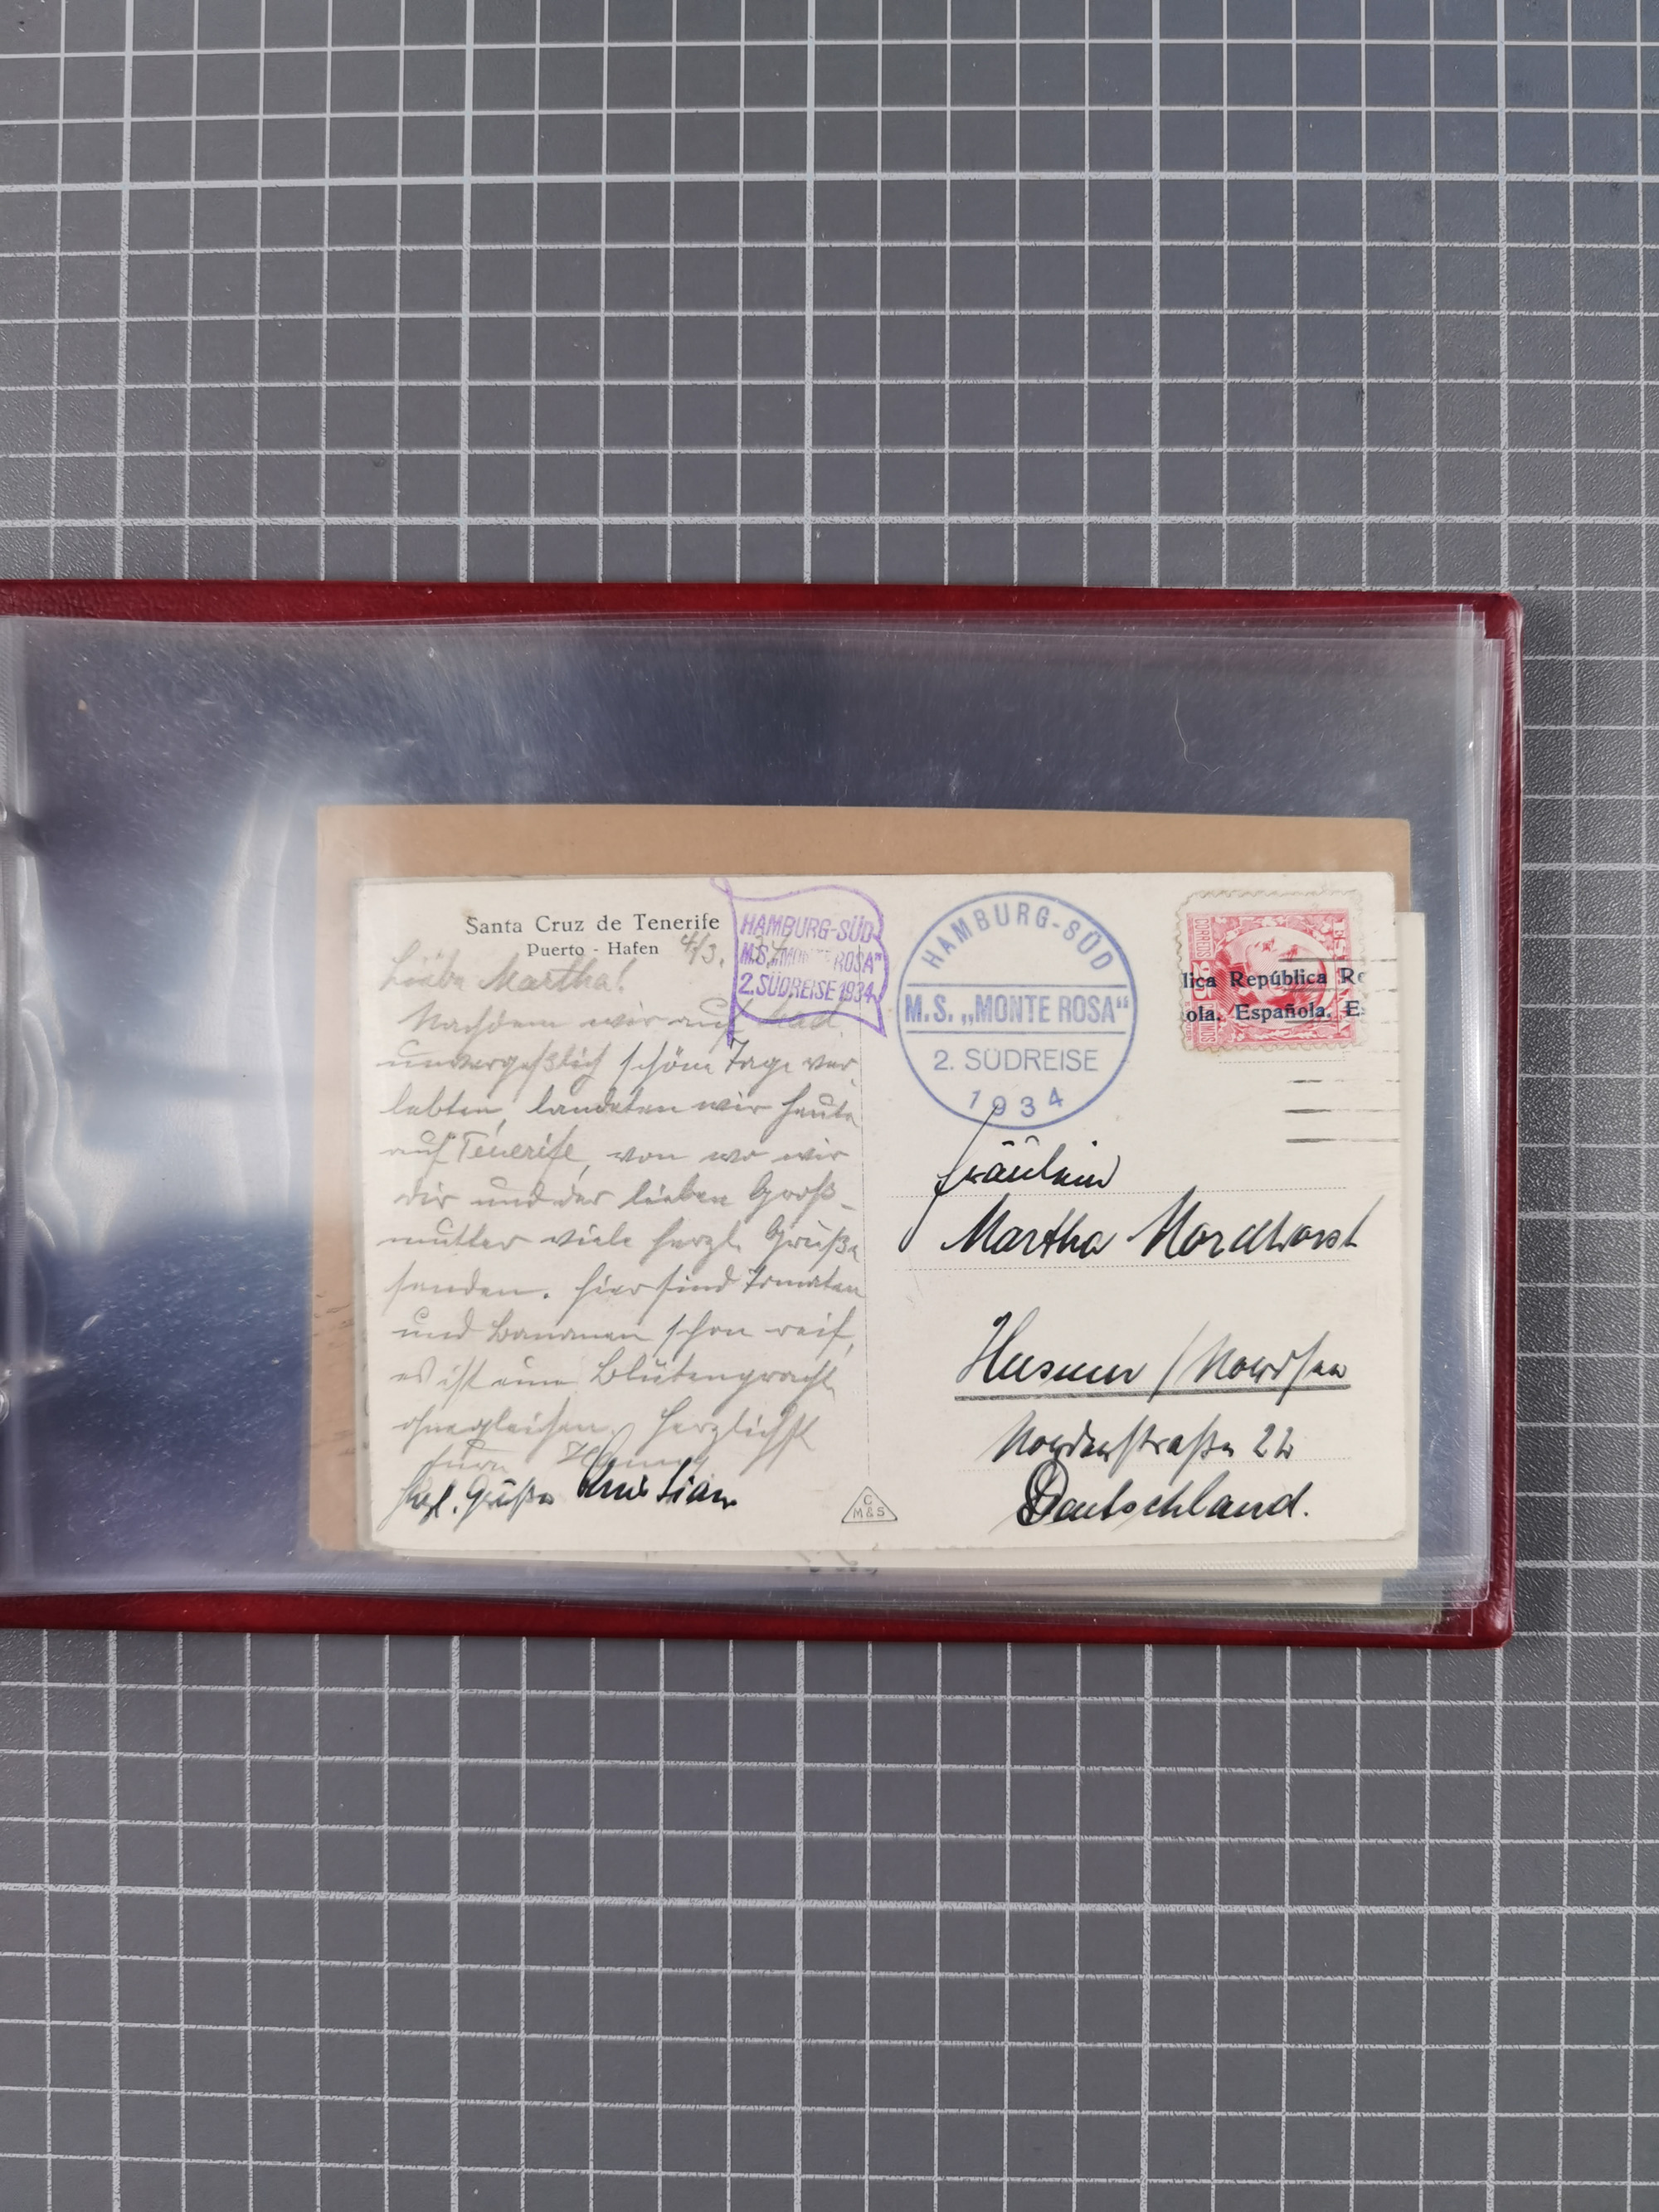 Santa Cruz de Tenerife
Puerto - Hafen
4/3.
HAMBURG-SÜD
M.S. „MONTE ROSA“
2. SÜDREISE 1934
Liebe Martha!
Nachdem wir auf Mad.
unvergeßlich schöne Tage ver
lebten, landeten wir heute
auf Tenerife, von wo wir
dir und der lieben Groß-
mutter viele herzl. Grüße
senden. Hier sind Tomaten
und Bananen schon reif,
es ist eine Blütenpracht
ohnegleichen. Herzlichst
Eure
Hzl. Grüße Christian
C
M&S
HAMBURG-SÜD
M.S. „MONTE ROSA“
2. SÜDREISE
1934
CORREOS
25
lica República Re
ola. Española. E
Fräulein
Martha Nordhorst
Husum / Nordsee
Norderstraße 22
Deutschland.